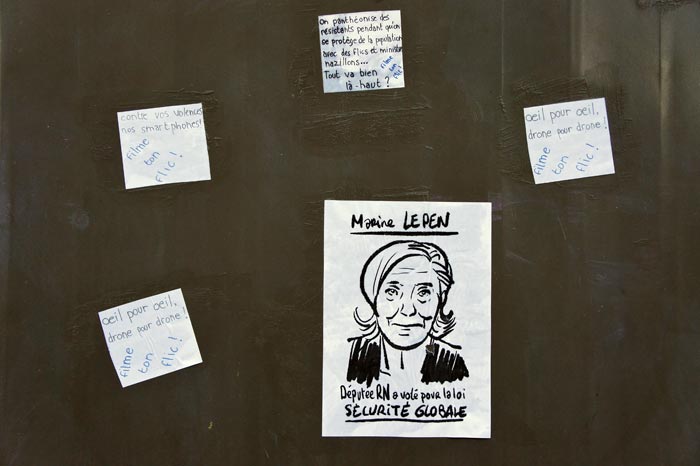 On panthéonise des
résistants pendant qu'on
se protège de la population
avec des flics et ministres
nazillons...
Tout va bien
là-haut ?
filme
ton
flic !
contre vos violences
nos smartphones !
filme
ton
flic !
oeil pour oeil,
drone pour drone !
filme
ton
flic !
Marine LEPEN
Députée RN a voté pour la loi
SÉCURITÉ GLOBALE
oeil pour oeil,
drone pour drone !
filme
ton
flic !